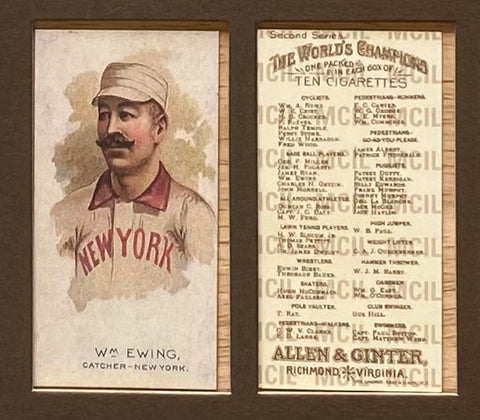 NEW YORK
Wᴹ EWING,
CATCHER-NEW YORK.
Second Series
THE WORLD'S CHAMPIONS
ONE PACKED IN EACH BOX OF
TEN CIGARETTES
CYCLISTS.
Wm A. Rowe.
W. E. Crist.
Ralph Temple.
Percy Stone.
Fred Wood.
BASE BALL PLAYERS.
Geo. F. Miller.
Jas. H. Fogarty.
James Ryan.
Wm. Ewing.
John Morrell.
ALL AROUND ATHLETES.
Duncan C. Ross.
Capt. J. C. Daly.
M. W. Ford.
LAWN TENNIS PLAYERS.
Thomas Pettitt.
R. D. Sears.
Dr. James Dwight.
WRESTLERS.
Edwin Bibby.
Theobaud Bauer.
SKATERS.
Hugh McCormack.
Axel Paulsen.
POLE VAULTER.
T. Ray.
PEDESTRIANS-WALKERS
E. D. Lange.
PEDESTRIANS-RUNNERS.
E. C. Carter.
W. G. George.
L. E. Myers.
Wm. Cummings.
PEDESTRIANS-
GO-AS-YOU-PLEASE.
James Albert.
Patrick Fitzgerald.
PUGILISTS.
Patsey Duffy.
Patsey Kerrigan.
Billy Edwards.
Frank Murphy.
Johnny Murphy.
Jack Havlin.
HIGH JUMPER.
W. B. Page.
WEIGHT LIFTER
C. A. J. Queckberner.
HAMMER THROWER.
W. J. M. Barry.
OARSMEN
Wm. O'Connor.
CLUB SWINGER.
Gus Hill.
Capt. Paul Boyton.
Capt. Matthew Webb.
ALLEN & GINTER,
RICHMOND, VIRGINIA.